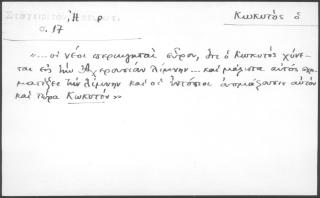 Κωκυτὸς ὁ
σ. 17
«...οἱ νέοι περιηγηταὶ εὗρον, ὅτι ὁ Κωκυτὸς χύνε-
ται εἰς τὴν Ἀχερουσίαν λίμνην... καὶ μάλιστα αὐτὸς σχη-
ματίζει τὴν λίμνην καὶ οἱ ἐντόπιοι ὀνομάζουσιν αὐτὸν
καὶ τώρα Κωκυτόν»